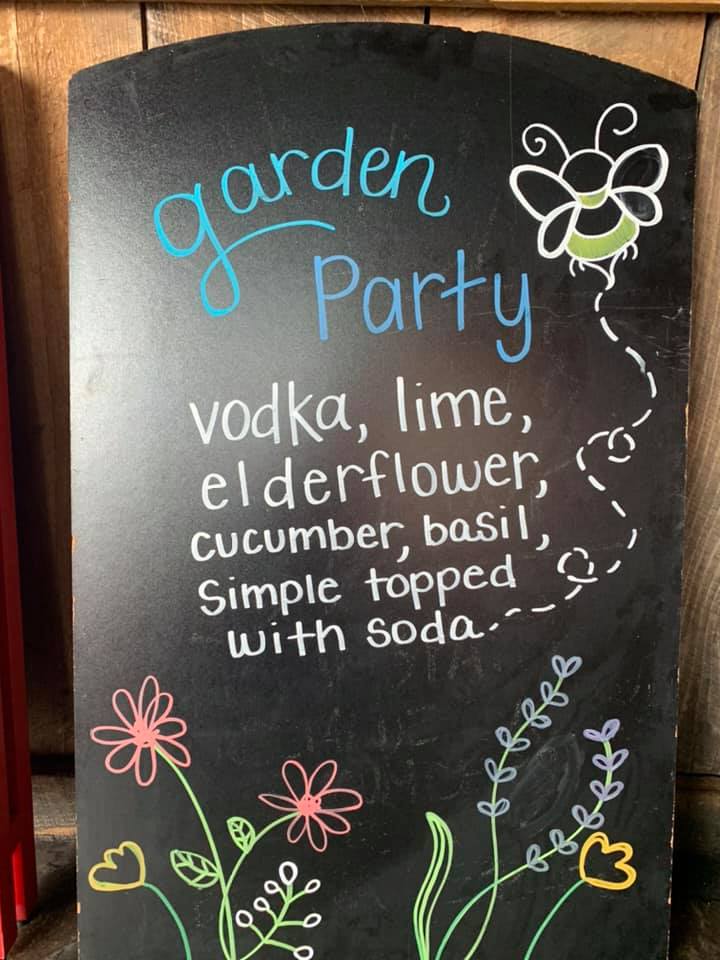 garden
Party
vodka, lime,
elderflower,
cucumber, basil,
Simple topped
with soda